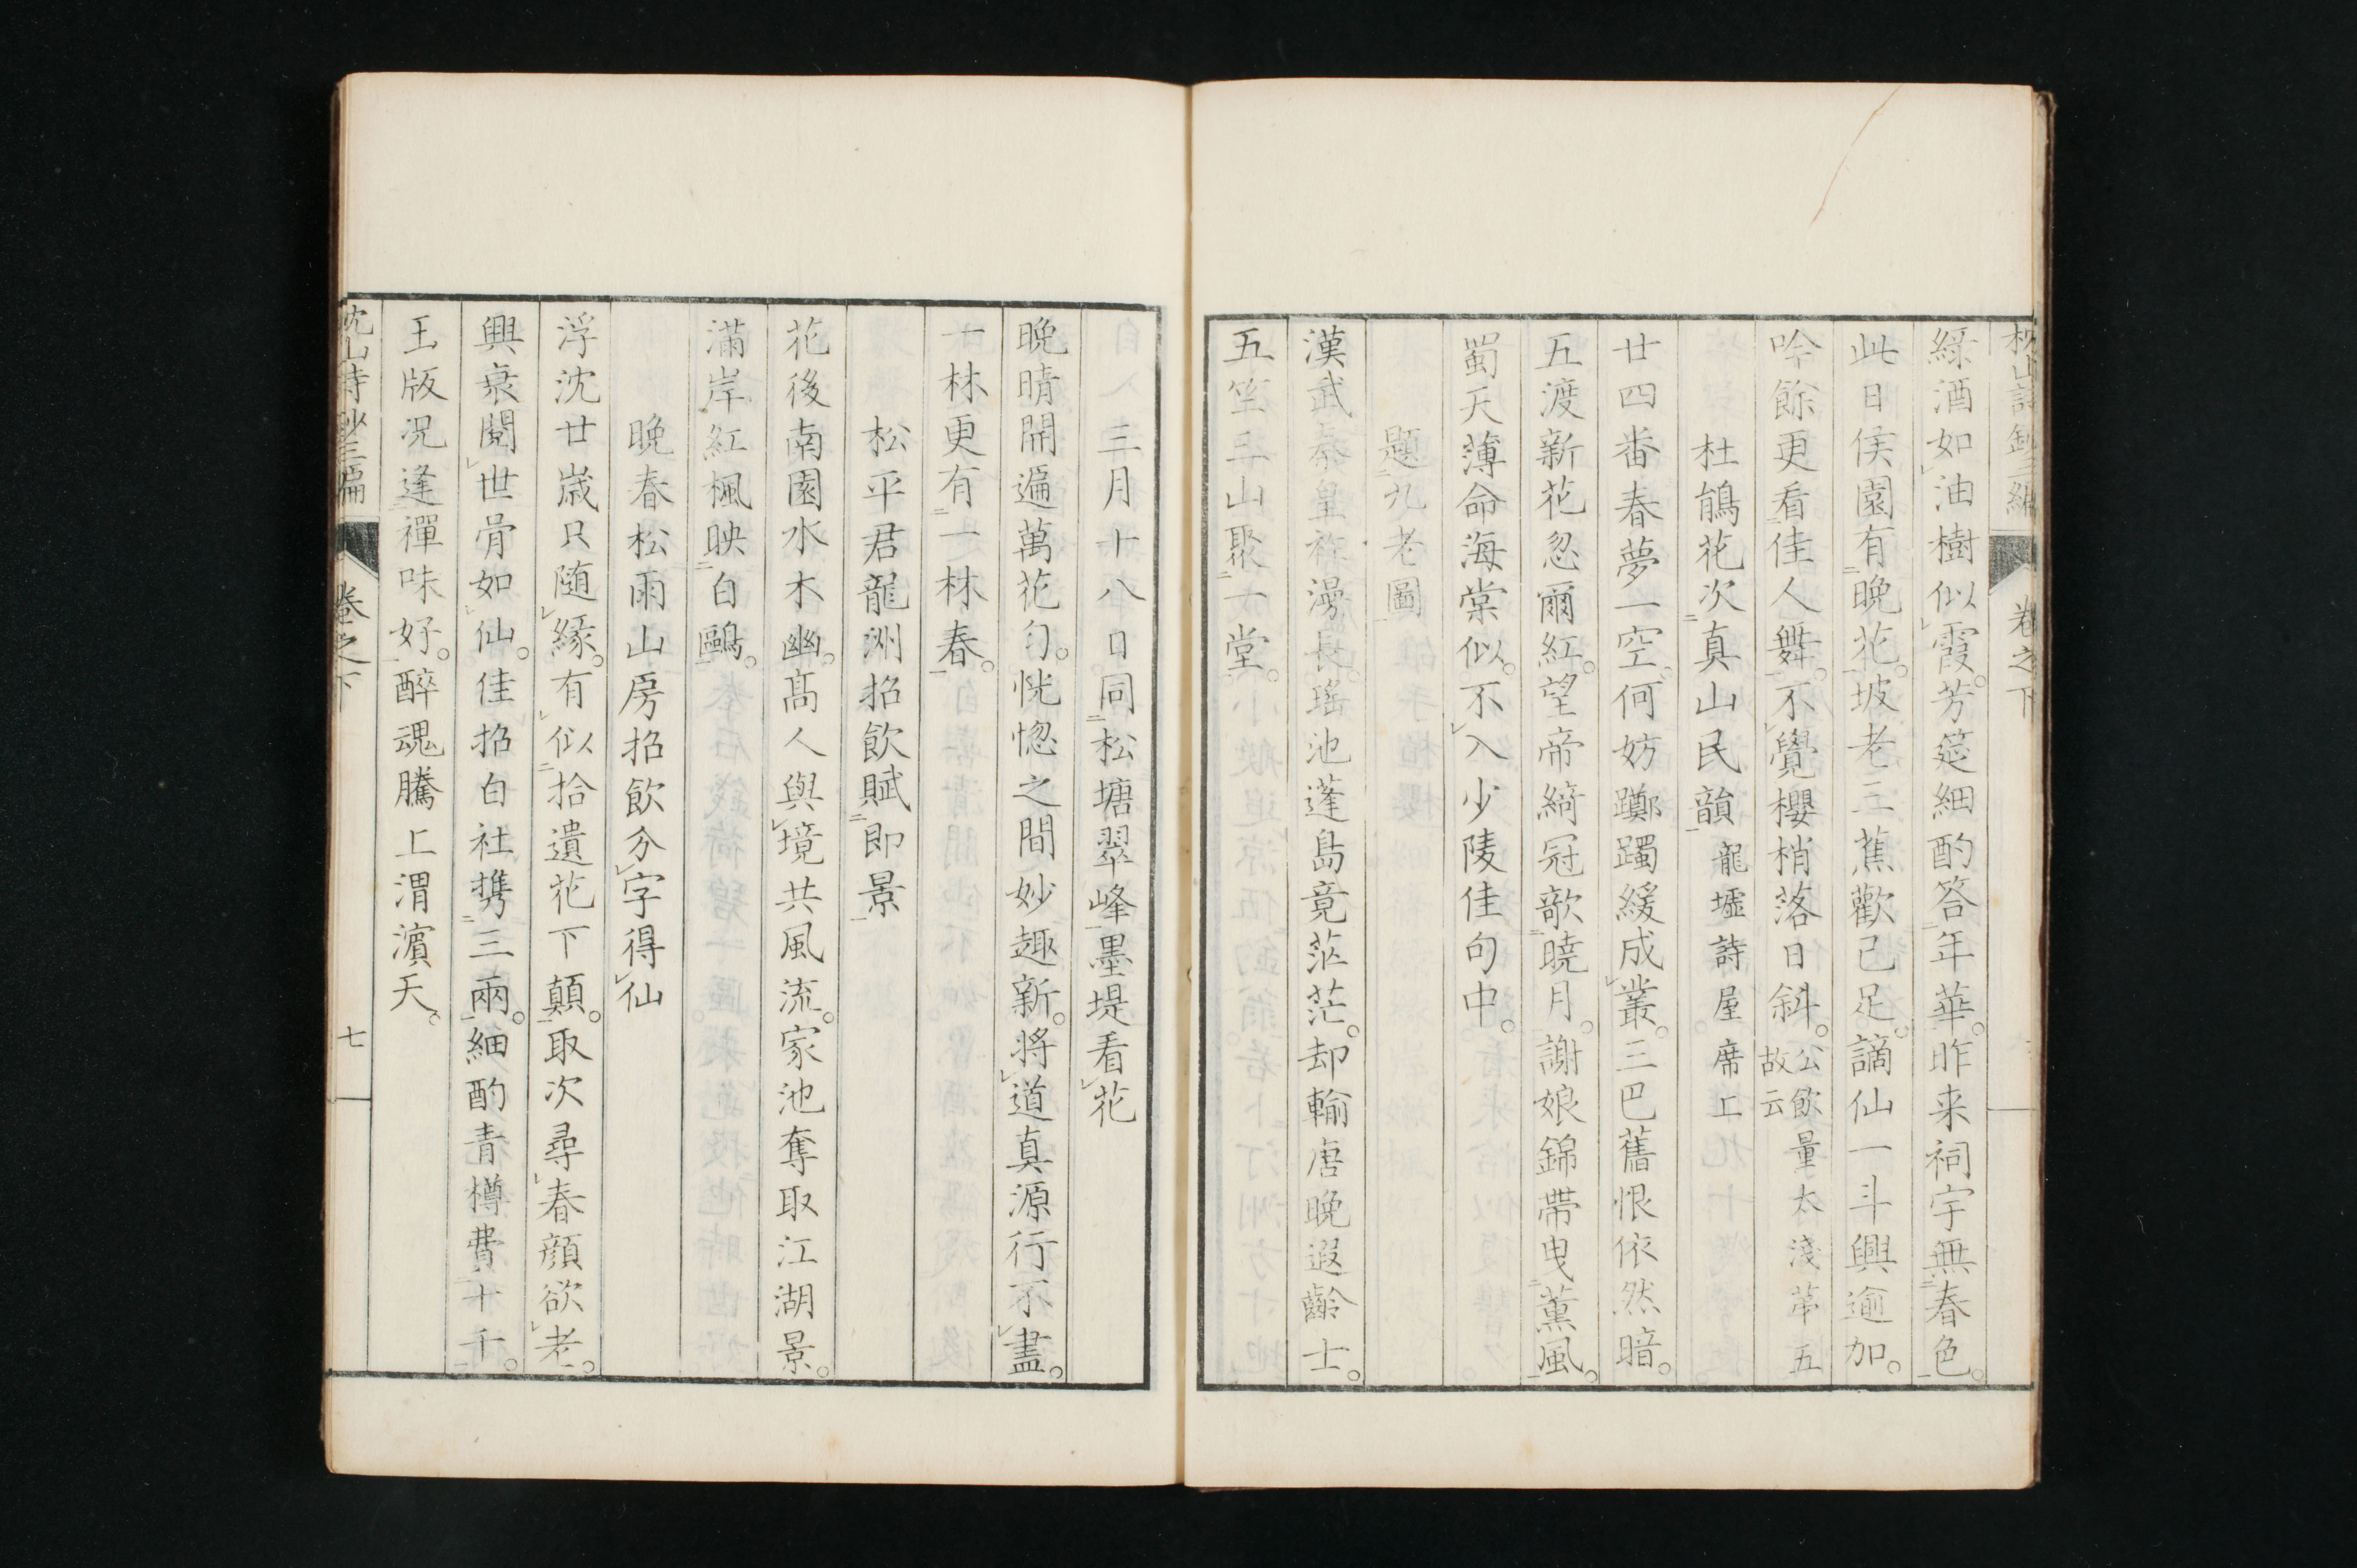 枕山詩鈔三編 卷之下
綠酒如油樹似霞。芳筵細酌答年華。昨来祠宇無春色。
此日侯園有晩花。坡老三蕉歡已足。謫仙一斗興逾加。
吟餘更看佳人舞。不覺櫻梢落日斜。公飲量太淺蕉五
故云
杜鵑花次真山民韻 龍墟詩屋席上
廿四番春夢一空。何妨躑躅緩成叢。三巴舊恨依然暗。
五渡新花忽爾紅。望帝綺冠欹曉月。謝娘錦帶曳薰風。
蜀天薄命海棠似。不入少陵佳句中。
題九老圖
漢武秦皇祚漫長。瑤池蓬島竟茫茫。却輸唐晩遐齡士。
五竺三山聚一堂。
三月十八日同松塘翠峰墨堤看花
晩晴開遍萬花匀。恍惚之間妙趣新。將道真源行不盡。
一林更有一林春。
松平君龍洲招飲賦即景
花後南園水木幽。髙人與境共風流。家池奪取江湖景。
滿岸紅楓映白鷗。
晩春松雨山房招飲分字得仙
浮沈廿歳只随緣。有似拾遺花下顛。取次尋春顔欲老。
興衰閲世骨如仙。佳招白社携三兩。細酌青樽費十千。
玉版况逢禪味好。醉魂騰上渭濱天。
枕山詩鈔三編 卷之下 七